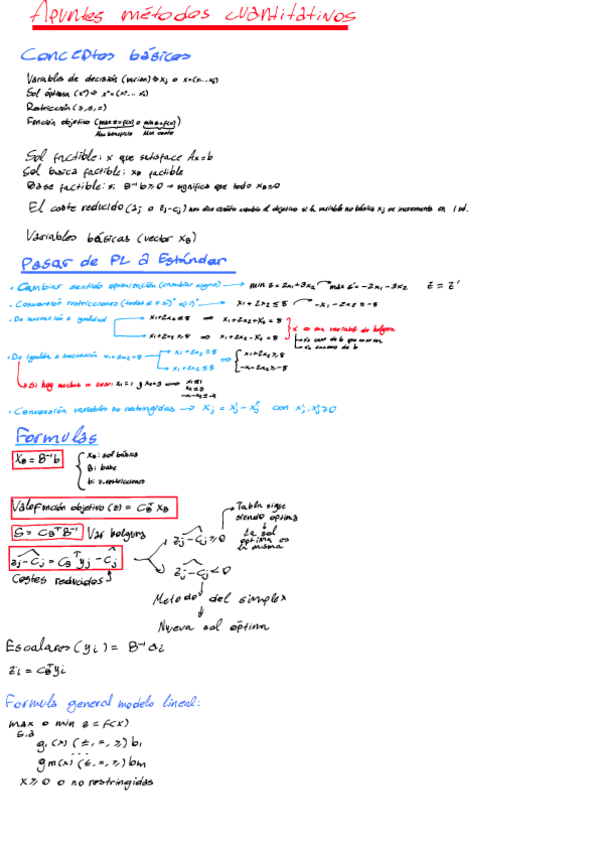 Apuntes métodos cuantitativos
Conceptos básicos
Variables de decisión (varian) → xj o x=(x1...xj)
Sol óptima (x*) → x*=(x1*... xj*)
Restricción (≥,≤,=)
Función objetivo (max z=f(x) o min z=f(x))
Max beneficio Min coste
Sol factible: x que satisface Ax=b
Sol basica factible: xB factible
Base factible: si B⁻¹b≥0 → significa que todo xB≥0
El coste reducido (zj-cj) nos dice cuánto cambia el objetivo si la variable no básica xj se incrementa en 1 ud.
Variables básicas (vector xB)
Pasar de PL a Estándar
· Cambiar sentido optimización (cambiar signo) → min z = 2x1+3x2 → max z' = -2x1-3x2 z = z'
· Conversión restricciones → x1+2x2≤8 → -x1-2x2≥-8
· De inecuación a igualdad
x1+2x2≤8 ⇒ x1+2x2+x3=8
x1+2x2≥8 ⇒ x1+2x2-x3=8
· De igualdad a inecuación x1+2x2=8
x1+2x2≤8
x1+2x2≥8
x1+2x2≥8
-x1-2x2≥-8
Si hay muchas
· Conversión variables no restringidas → xj = xj'-xj'' con xj',xj''≥0
Formulas
XB = B⁻¹b
xB: sol básica
B: base
b: v.restricciones
Valor función objetivo (z) = CBᵀ XB
S = CBᵀB⁻¹ Var holgura
zj-cj = CBᵀyj-Cj
Costes reducidos
zj-cj≥0
Tabla sigue
siendo optima
La sol
optima es
la misma
zj-cj<0
Metodo del simplex
Nueva sol óptima
Escalares (yi) = B⁻¹ai
zi = CBᵀyi
Formula general modelo lineal:
max o min z = f(x)
s.a
g1(x) (≤,=,≥) b1
...
gm(x) (≤,=,≥) bm
x≥0 o no restringidas